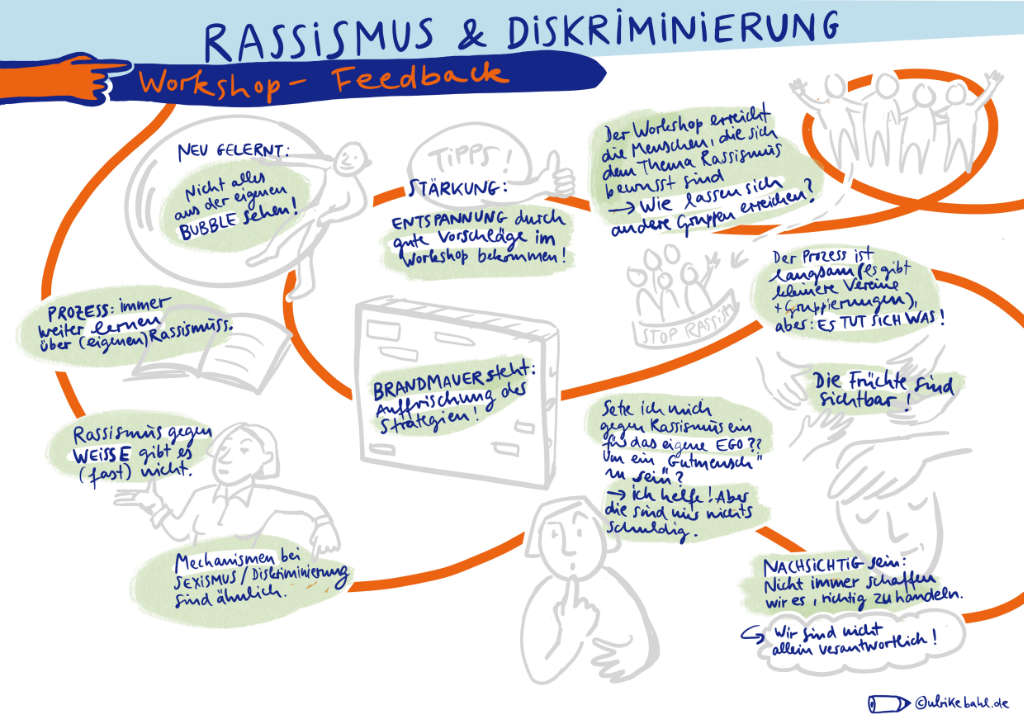 RASSISMUS & DISKRIMINIERUNG
Workshop – Feedback
NEU GELERNT:
Nicht alles
aus der eigenen
BUBBLE sehen!
TIPPS!
STÄRKUNG:
ENTSPANNUNG durch
gute Vorschläge im
Workshop bekommen!
Der Workshop erreicht
die Menschen, die sich
dem Thema Rassismus
bewusst sind
→ Wie lassen sich
andere Gruppen erreichen?
PROZESS: immer
weiter lernen
über (eigenen) Rassismuss.
STOP RASSISM
Der Prozess ist
langsam (es gibt
kleinere Vereine
+ Gruppierungen),
aber: ES TUT SICH WAS!
BRANDMAUER steht:
Auffrischung des
Strategien!
Die Früchte sind
sichtbar!
Rassismus gegen
WEISSE gibt es
(fast) nicht.
Setze ich mich
gegen Rassismus ein
für das eigene EGO??
Um ein „Gutmensch"
zu sein?
→ ich helfe! Aber
die sind mir nichts
schuldig.
Mechanismen bei
SEXISMUS / Diskriminierung
sind ähnlich.
NACHSICHTIG sein:
Nicht immer schaffen
wir es, richtig zu handeln.
↪ Wir sind nicht
allein verantwortlich!
©ulrikebahl.de